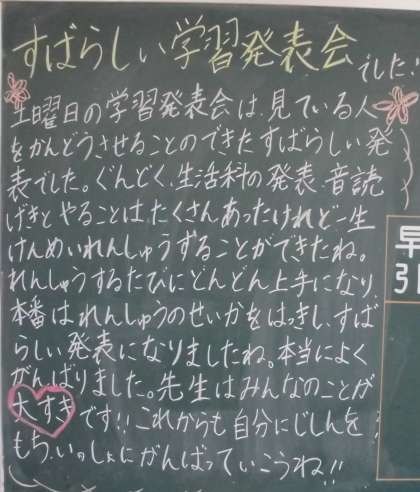 すばらしい学習発表会でした!
土曜日の学習発表会は、見ている人
をかんどうさせることのできたすばらしい発
表でした。ぐんどく、生活科の発表、音読
げきとやることは、たくさんあったけれど一生
けんめいれんしゅうすることができたね。
れんしゅうするたびにどんどん上手になり、
本番はれんしゅうのせいかをはっきし、すば
らしい発表になりましたね。本当によく
がんばりました。先生はみんなのことが
大すきです!!これからも自分にじしんを
もち、いっしょにがんばっていこうね!!
早
引